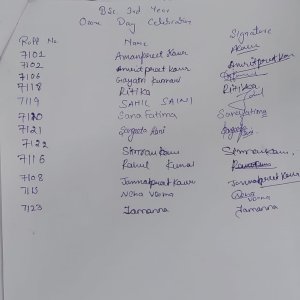 BSc 3rd Year
Ozone Day Celebration
Roll No Name Signature
7101 Amanpreet Kaur
7102 Amritpreet Kaur Amritpreet Kaur
7106 Gayatri Kumari
7118 Ritika Ritika
7119 SAHIL SAINI
7120 Sana Fatima Sana Fatima
7121 Rani
7122 Simran Kumari
7116 Rahul Kumar
7108 Jannatpreet Kaur Jannatpreet Kaur
7115 Neha Verma Neha Verma
7123 Tamanna Tamanna